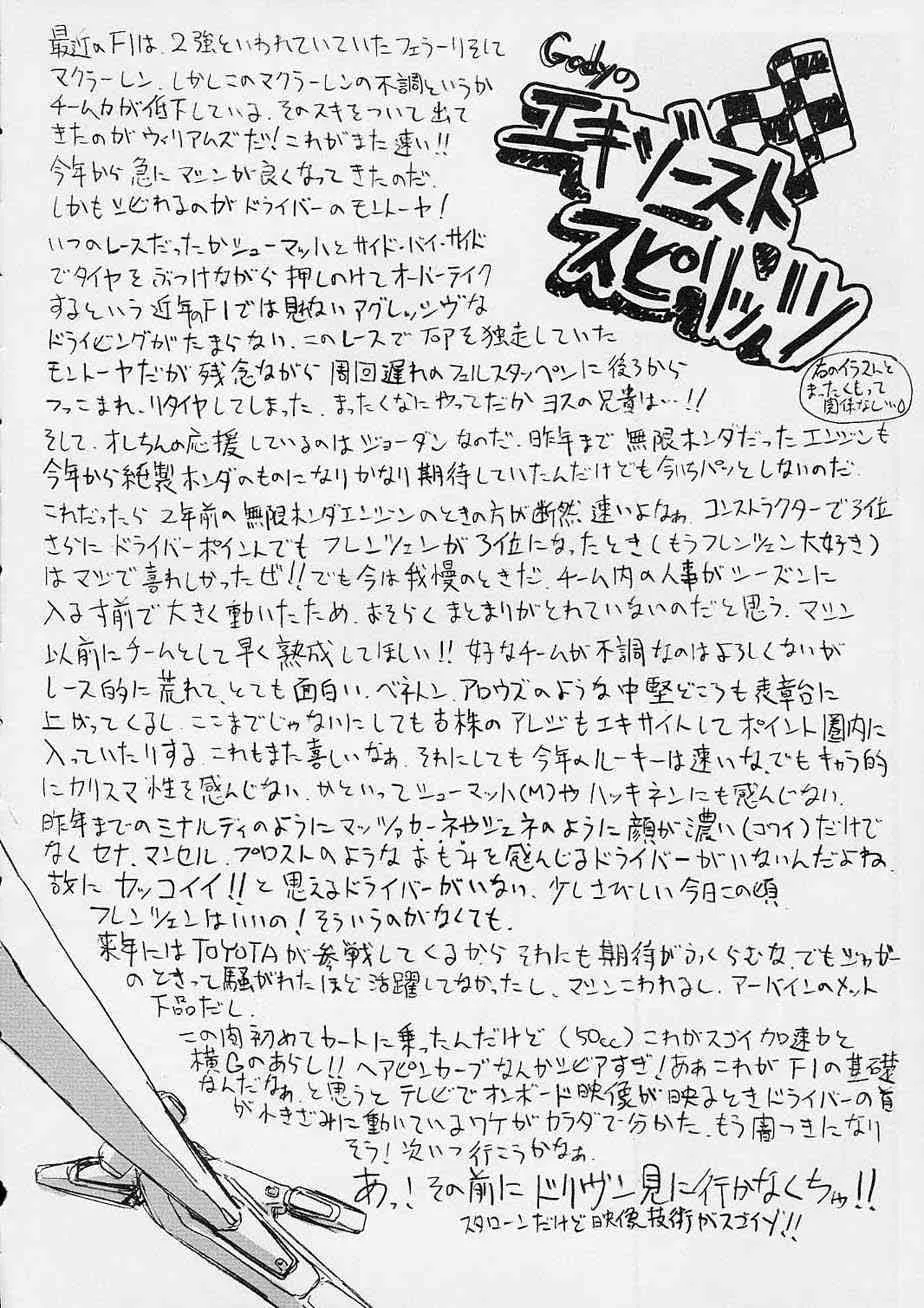 Godyの
エキゾースト
スピリッツ
右のイラストと
まったくもって
関係なし…。
最近のF1は、2強といわれていていたフェラーリそして
マクラーレン、しかしこのマクラーレンの不調というか
チーム力が低下している。そのスキをついて出て
きたのがウィリアムズだ!これがまた速い!!
今年から急にマシンが良くなってきたのだ。
しかもシビれるのがドライバーのモントーヤ!
いつのレースだったかシューマッハとサイド・バイ・サイド
でタイヤをぶつけながら押しのけてオーバーテイク
するという近年のF1では見ないアグレッシヴな
ドライビングがたまらない、このレースでTOPを独走していた
モントーヤだが残念ながら周回遅れのフェルスタッペンに後ろから
つっこまれ、リタイヤしてしまった、まったくなにやってだかヨスの兄貴は…!!
そして、オレちんの応援しているのはジョーダンなのだ、昨年まで無限ホンダだったエンジンも
今年から純製ホンダのものになりかなり期待していたんだけども今いちパッとしないのだ.
これだったら2年前の無限ホンダエンジンのときの方が断然速いよなぁ.コンストラクターで3位
さらにドライバーポイントでもフレンツェンが3位になったとき(もうフレンツェン大好き)
はマジで喜れしかったぜ!!でも今は我慢のときだ.チーム内の人事がシーズンに
入るす前で大きく動いたため、おそらくまとまりがとれていないのだと思う.マシン
以前にチームとして早く熟成してほしい!!好なチームが不調なのはよろしくないが
レース的に荒れて、とても面白い.ベネトン、アロウズのような中堅どころも表章台に
上がってくるし、ここまでじゃないにしても古株のアレジもエキサイトしてポイント圏内に
入っていたりする.これもまた喜しいなぁ.それにしても今年のルーキーは速いな、でもキャラ的
にカリスマ性を感んじない.かといってシューマッハ(M)やハッキネンにも感んじない.
昨年までのミナルディのようにマッツァカーネやジェネのように顔が濃い(コワイ)だけで
なくセナ、マンセル、プロストのようなおもみを感んじるドライバーがいないんだよね
故にカッコイイ!!と思えるドライバーがいない.少しさびしい今日この頃
フレンツェンはいいの!そういうのがなくても.
来年にはTOYOTAが参戦してくるからそれにも期待がふくらむな、でもジャガー
のときって騒がわたほど活躍してなかったし、マシンこわれるし、アーバインのメット
下品だし.
この間初めてカートに乗ったんだけど(50cc)これがスゴイ加速力と
横Gのあらし!!ヘアピンカーブなんかシビアすぎ!あぁこれがF1の基礎
なんだなぁ、と思うとテレビでオンボード映像が映るときドライバーの首
が小きざみに動いているワケがカラダで分かた、もう闇つきになり
そう!次いつ行こうかなぁ.
あっ!その前にドリヴン見に行かなくちゃ!!
スタローンだけど映像技術がスゴイゾ!!